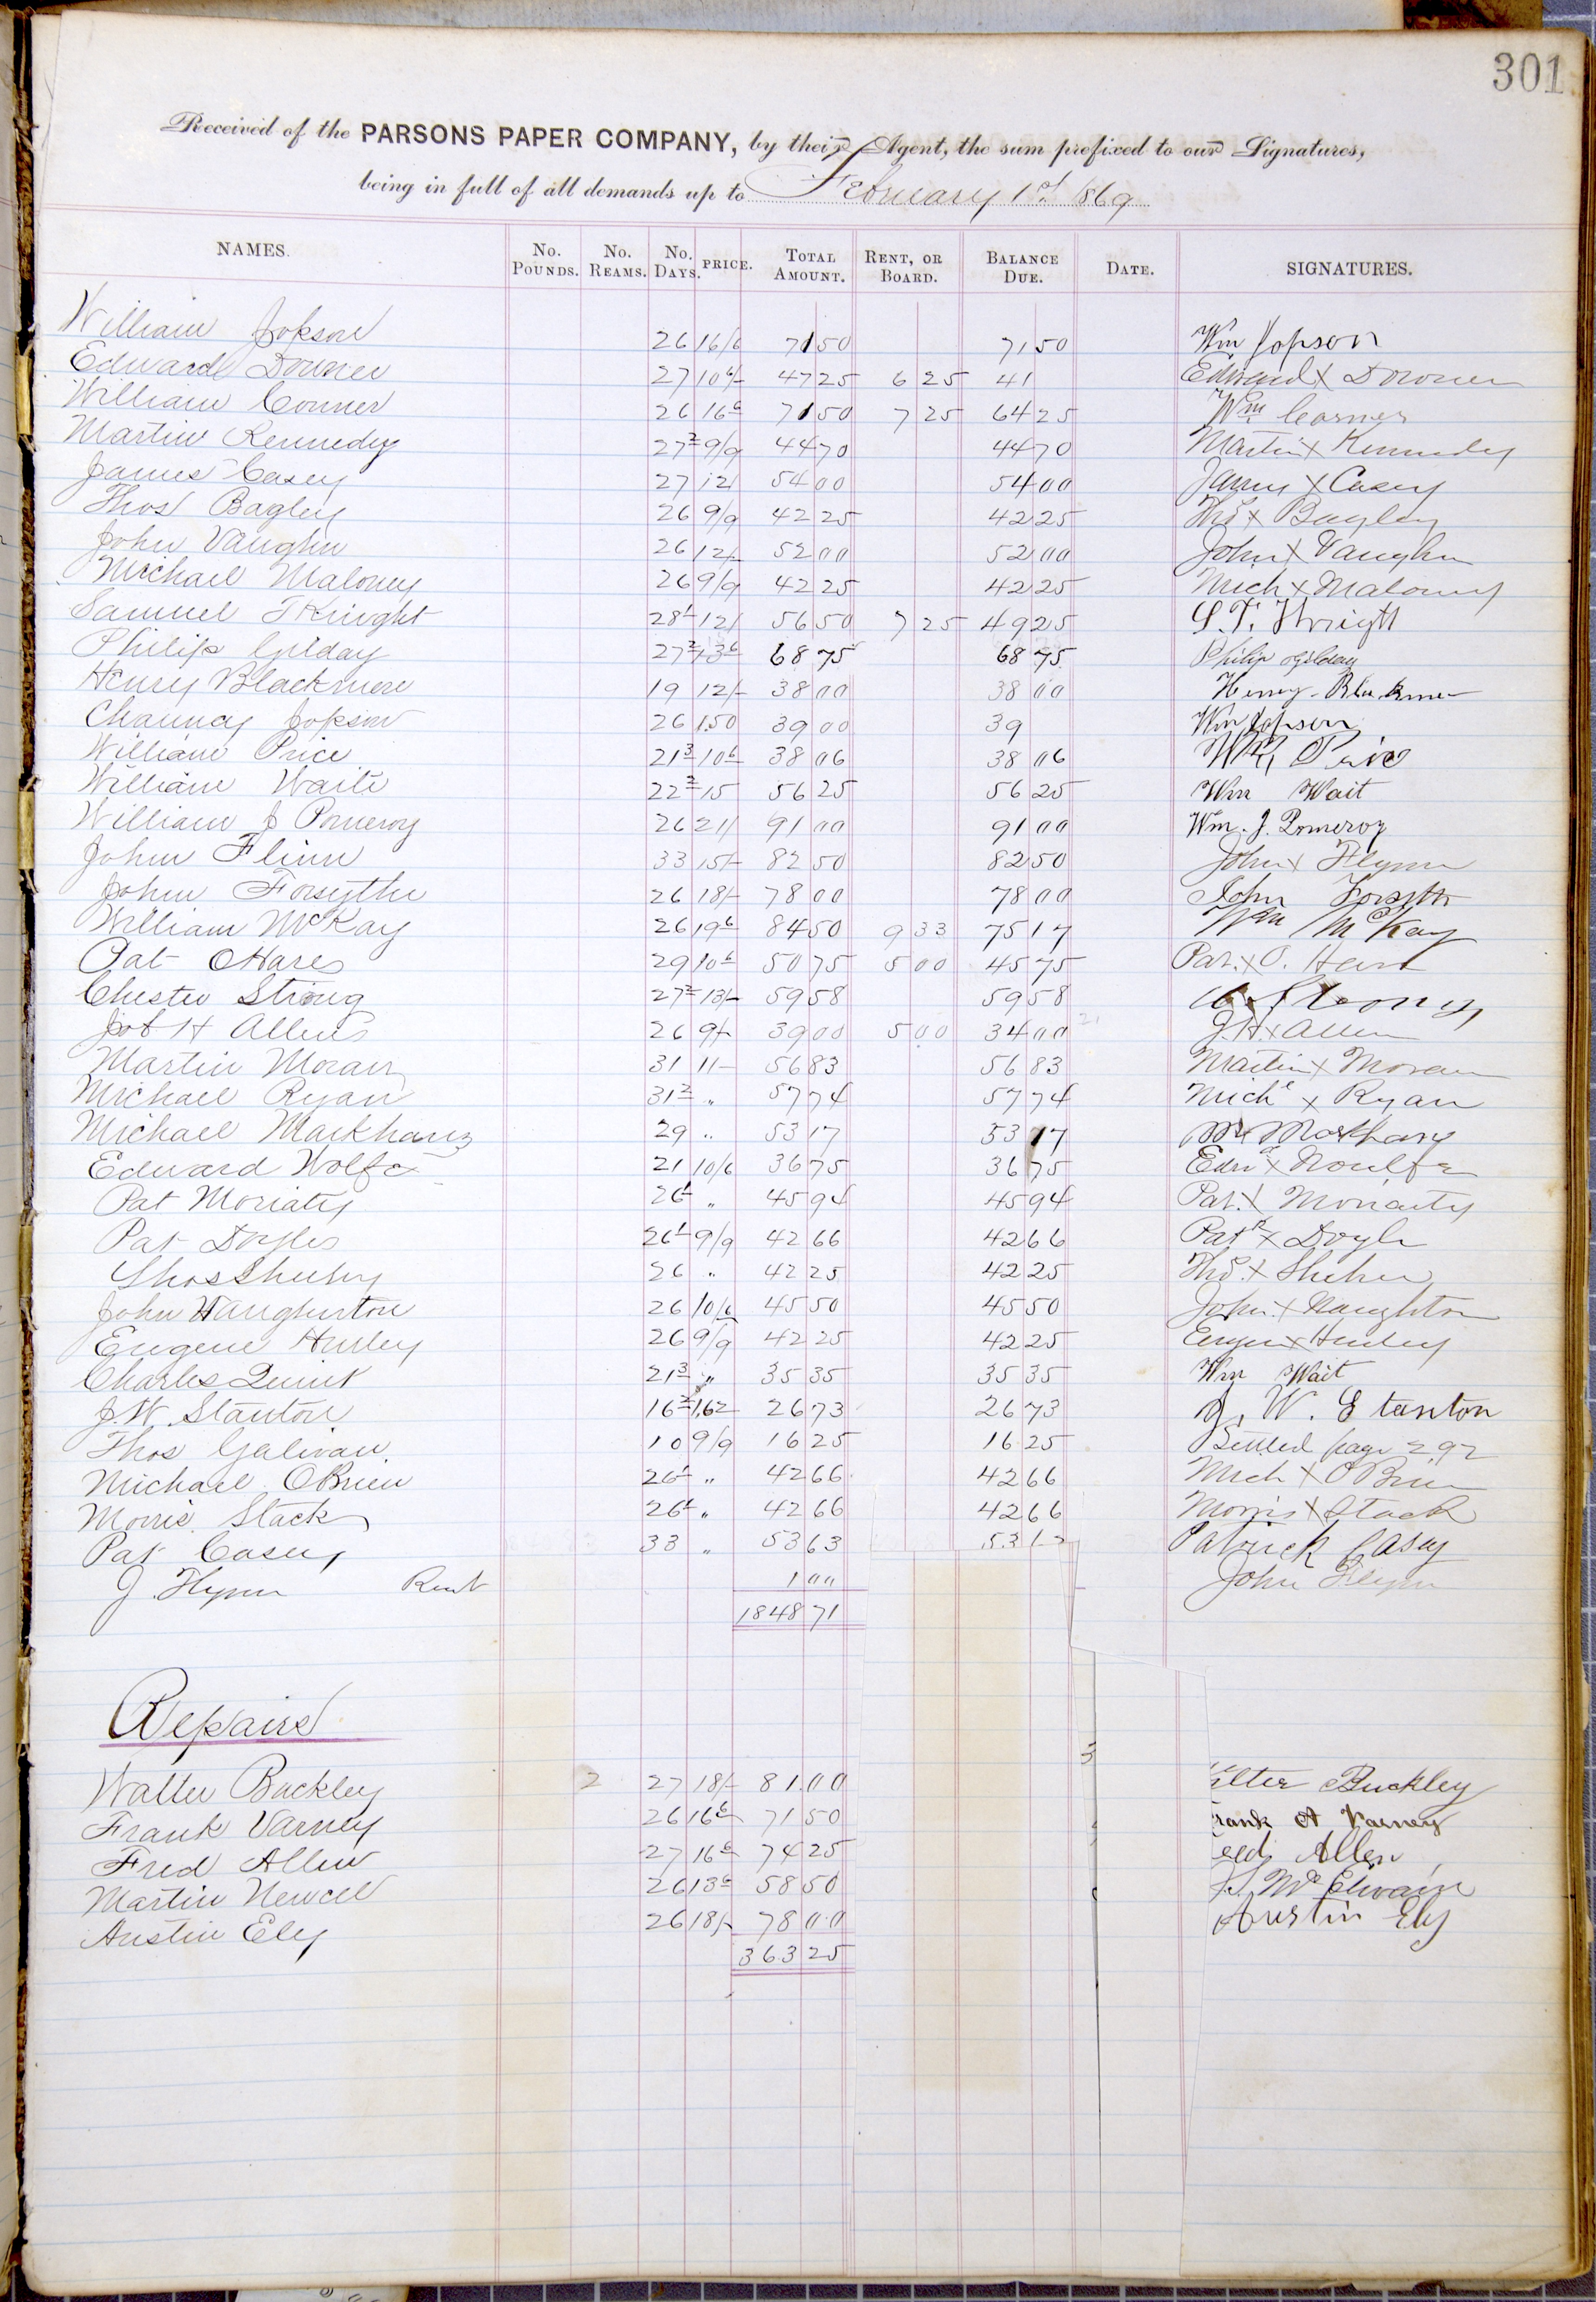 301
Received of the PARSONS PAPER COMPANY, by their Agent, the sum prefixed to our Signatures,
being in full of all demands up to February 1st 1869
NAMES. No. POUNDS. No. REAMS. No. DAYS. PRICE. TOTAL AMOUNT. RENT, OR BOARD. BALANCE DUE. DATE. SIGNATURES.
William Jopson 26 16/6 71 50 71 50 Wm Jopson
Edward Downer 27 10 6/- 47 25 6 25 41 Edward X Downer
William Conner 26 16 6 71 50 7 25 64 25 Wm Conner
Martin Kennedy 27 2 9/9 44 70 44 70 Martin X Kennedy
James Casey 27 12/ 54 00 54 00 James X Casey
Thos Bagley 26 9/9 42 25 42 25 Thos X Bagley
John Vaughn 26 12/- 52 00 52 00 John X Vaughn
Michael Maloney 26 9/9 42 25 42 25 Mich X Maloney
Samuel T Knight 28 1 12/ 56 50 7 25 49 25 S. T.
Philip Gilday 27 2 13 6 68 75 68 75 Philip Gilday
Henry Blackmere 19 12/- 38 00 38 00 Henry
Chauncy Jopson 26 1.50 39 00 39 Wm Jopson
William Price 21 3 10 6 38 06 38 06 Wm Price
William Waite 22 2 15 56 25 56 25 Wm Wait
William J Pomeroy 26 21/ 91 00 91 00 Wm. J. Pomeroy
John Flinn 33 15/- 82 50 82 50 John X Flynn
John Forsythe 26 18/- 78 00 78 00 John Forsyth
William McKay 26 19 6 84 50 9 33 75 17 Wm McKay
Pat OHares 29 10 6 50 75 5 00 45 75 Pat. X O.
Chester Strong 27 2 13/- 59 58 59 58
Job H Allen 26 9/- 39 00 5 00 34 00 J. H. X Allen
Martin Moran 31 11- 56 83 56 83 Martin X Moran
Michael Ryan 31 2 " 57 74 57 74 Michl X Ryan
Michael Markham 29 " 53 17 53 17 M X
Edward Wolfe 21 10/6 36 75 36 75 Edwd X
Pat Moriaty 26 1 " 45 94 45 94 Pat. X Moriarty
Pat Doyles 26 1 9/9 42 66 42 66 Patk X Doyle
Thos Sheehy 26 " 42 25 42 25 Thos. X
John Naughnton 26 10/6 45 50 45 50 John X Naughton
Eugene Hurley 26 9/9 42 25 42 25 Eugene X Hurley
Charles Quint 21 3 " 35 35 35 35 Wm Wait
J. W. Stanton 16 2 1.62 26 73 26 73 J. W. Stanton
Thos Galivan. 10 9/9 16 25 16 25 Settled page 292
Michael OBrien 26 1 " 42 66 42 66 Mich X OBrien
Morris Stack 26 1 " 42 66 42 66 Morris X Stack
Pat Casey 33 " 53 63 Patrick Casey
J. Flynn Rent 1 00 John Flynn
1848 71
Repairs
Walter Buckley 2 27 18/- 81.00 lter Buckley
Frank Varney 26 16 6 71 50 rank A Varney
Fred Allen 27 16 6 74 25 Allen
Martin Newell 26 13 6 58 50 McElwain
Austin Ely 26 18/- 78 00 Austin Ely
363 25